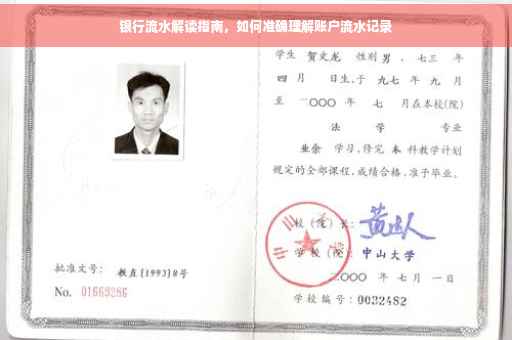 银行流水解读指南，如何准确理解账户流水记录
学生 贺文龙 性别 男 、七三 年
四 月 日生,于 九七 年 九 月
至 二〇〇〇 年 七 月在本校(院)
法 学 专业
业余 学习,修完 本 科教学计划
规定的全部课程,成绩合格,准予毕业。
校 (院) 长:
学 校 (院): 中山大学
二〇〇〇 年 七 月 一 日
批准文号: 教直[1993]8号
No. 01669286
学校编号: 0032482